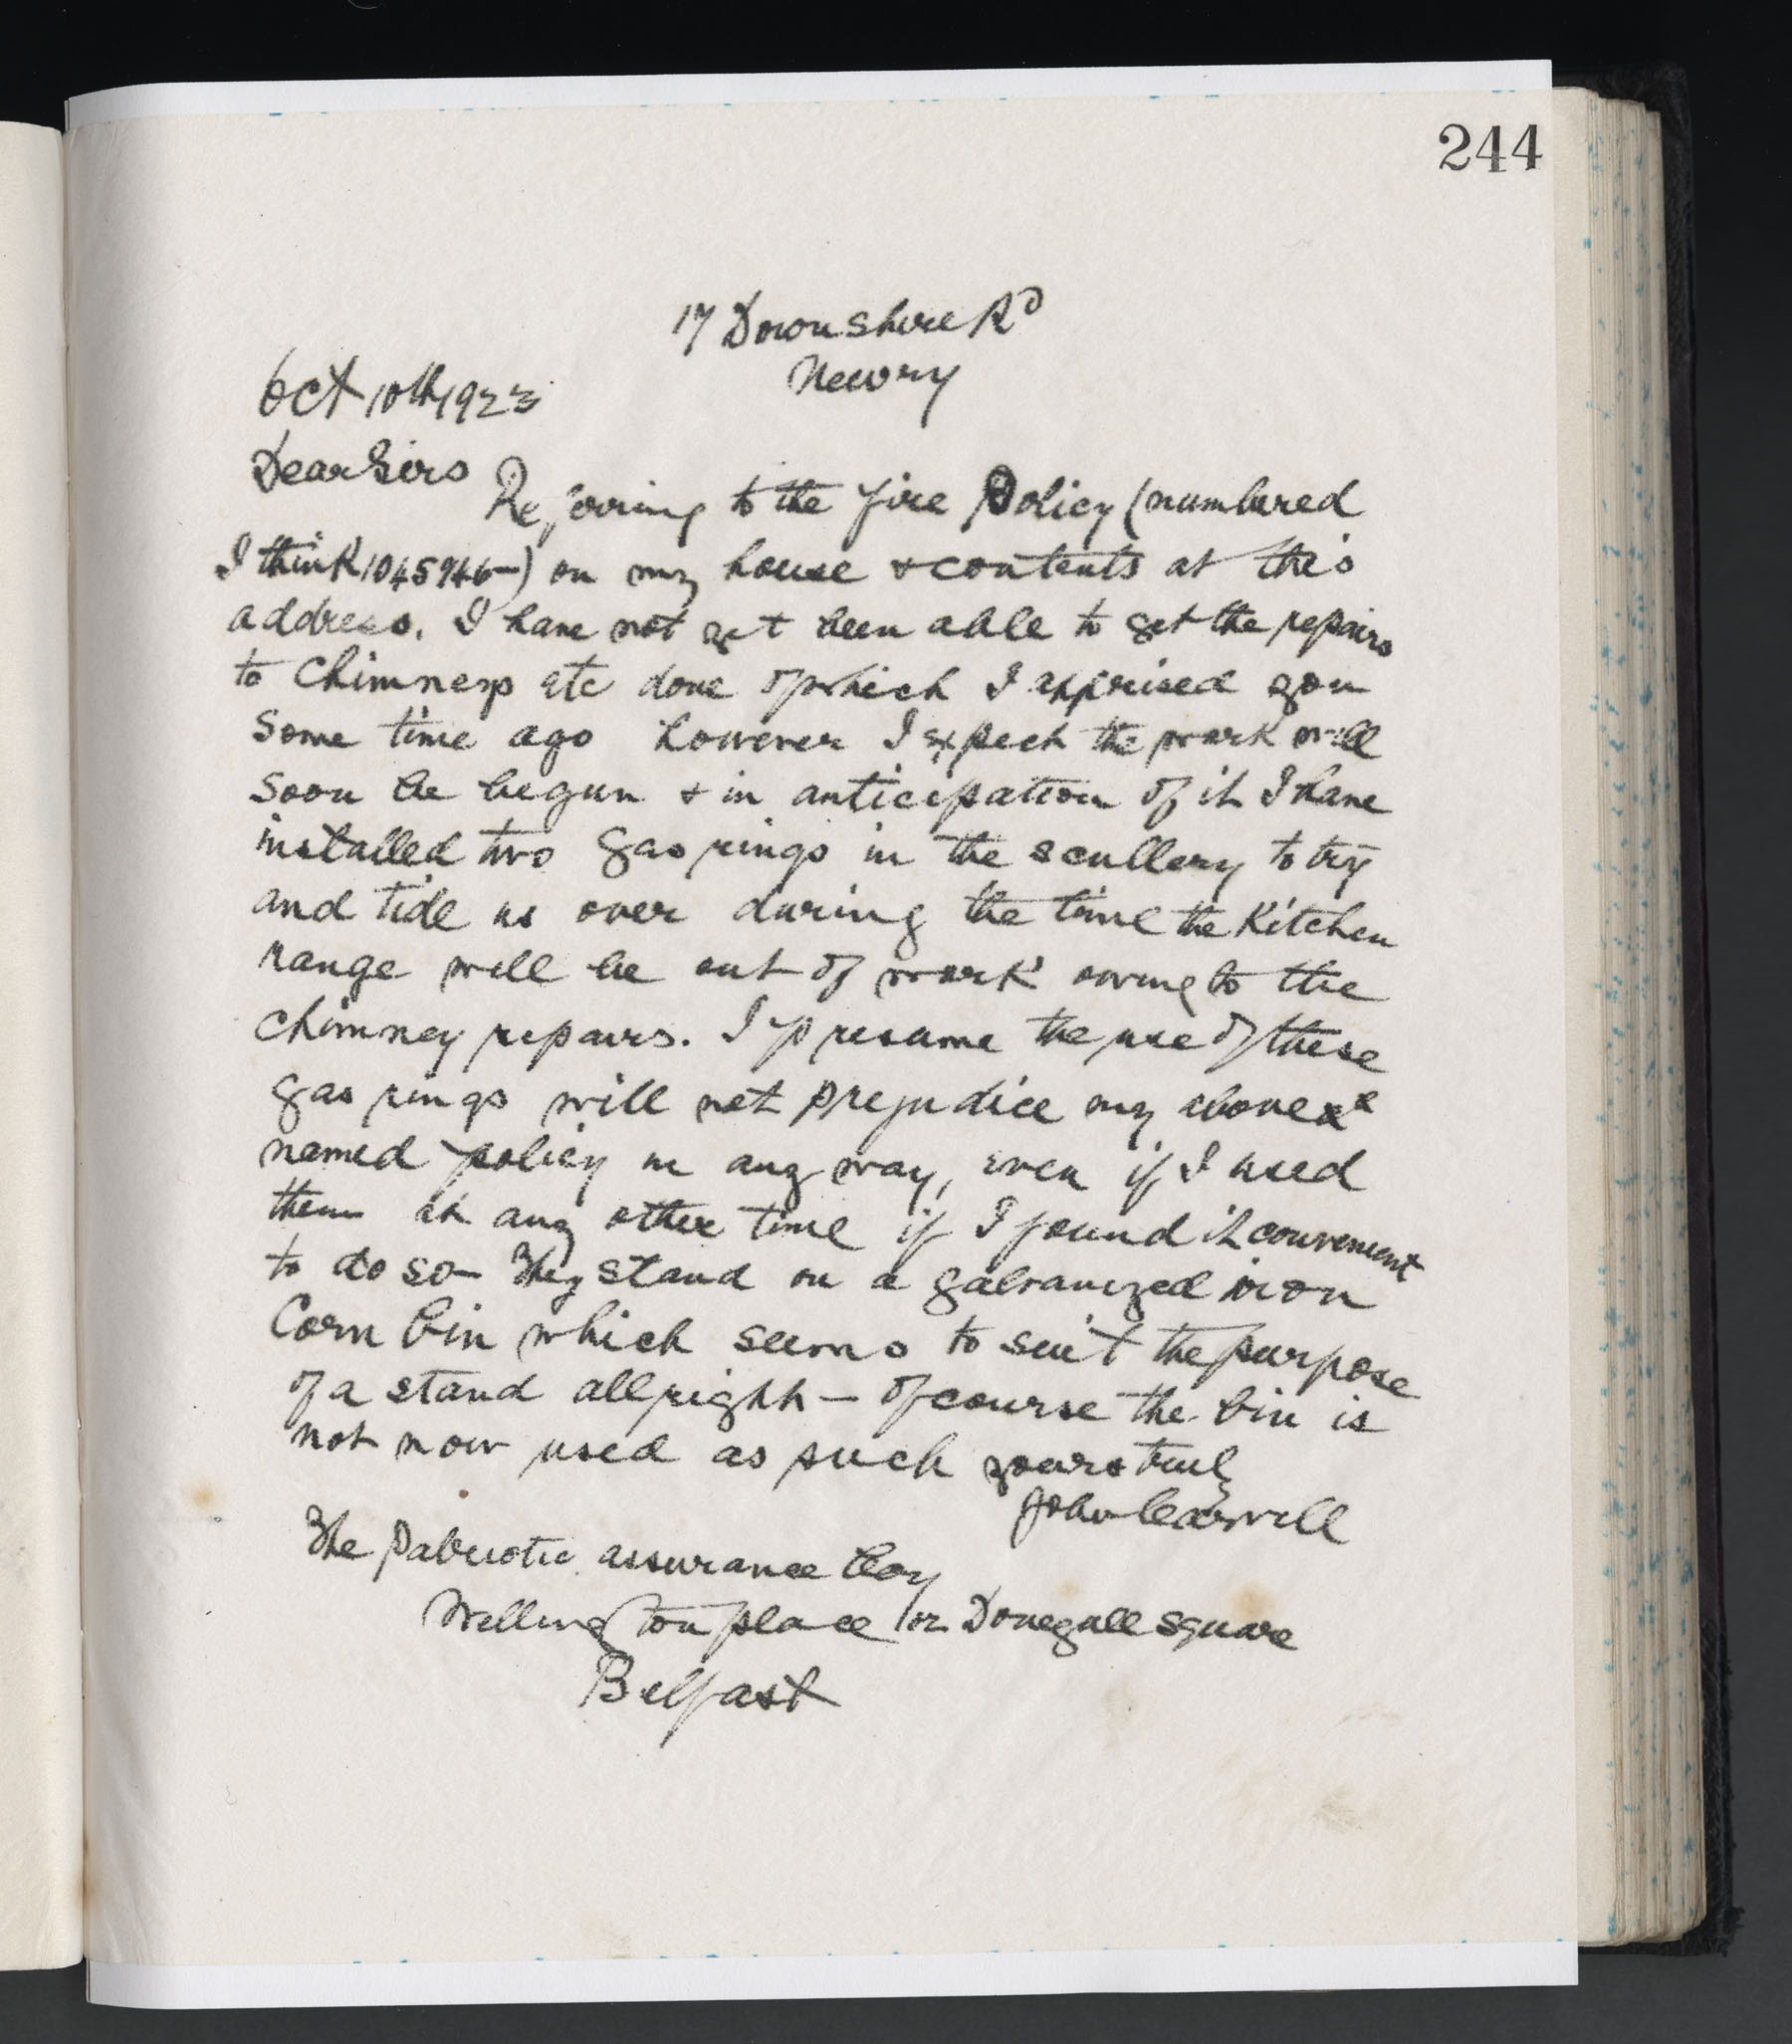 244
17 Downshire Rd
Newry
Oct 10th 1923
Dear Sirs
Referring to the fire Policy (numbered
I think 1045746—) on my house & contents at this
address. I have not yet been able to get the repairs
to Chimneys etc done of which I apprised you
some time ago however I expect the work will
soon be begun & in anticipation of it I have
installed two gas rings in the scullery to try
and tide us over during the time the Kitchen
range will be out of work owing to the
chimney repairs. I presume the use of these
gas rings will not prejudice my above
named policy in any way, even if I used
them at any other time if I found it convenient
to do so— They stand on a galvanized iron
Corn bin which seems to suit the purpose
of a stand all right — of course the bin is
not now used as such yours truly
John
The Patriotic assurance Coy
Wellington place or Donegall square
Belfast